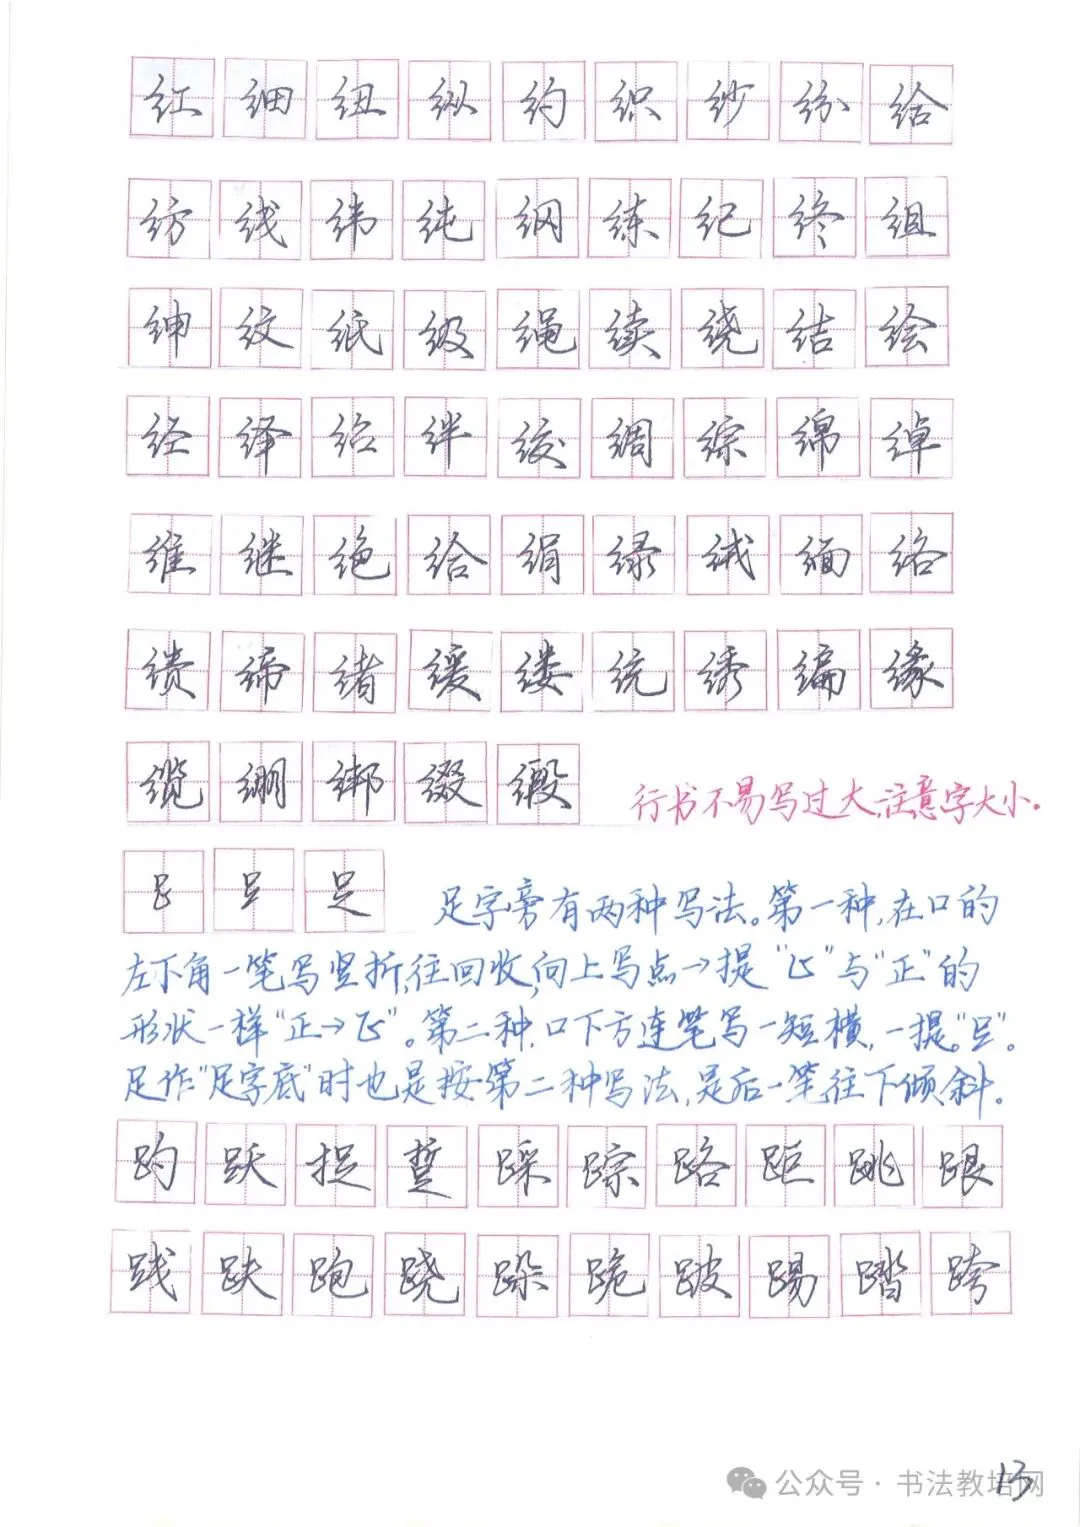 红细纽纵约织纱纷给
纺线纬纯纲练纪终组
绅纹纸级绳续绕结绘
经绎绍绊绞绸综绵绰
维继绝给绢绿绒缅络
缋缔绪缓缕统绣编缘
缆绷绑缀缎
行书不易写过大,注意字大小。
足
足字旁有两种写法。第一种,在口的
左下角一笔写竖折,往回收,向上写点→提"止"与"正"的
形状一样"正→𤴓"。第二种,口下方连笔写一短横,一提"𧾷"。
足作"足字底"时也是按第二种写法,是后一笔往下倾斜。
趵跃捉踅踩踪路距跳跟
践趺跑跷跺跪跛踢踏跨
公众号·书法教培网
13